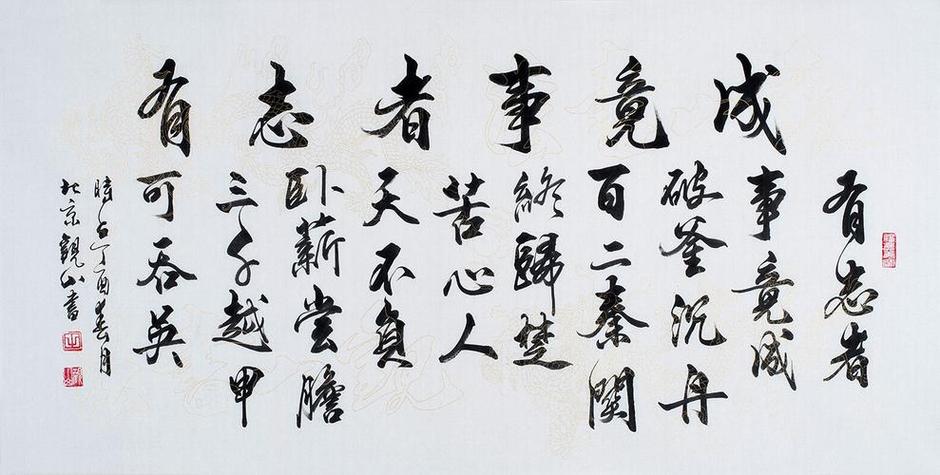 有志者事竟成
有志者
事竟成
破釜沉舟
百二秦關
終歸楚
苦心人
天不負
卧薪尝膽
三千越甲
可吞吴
時在丁酉春月
北京觀山書